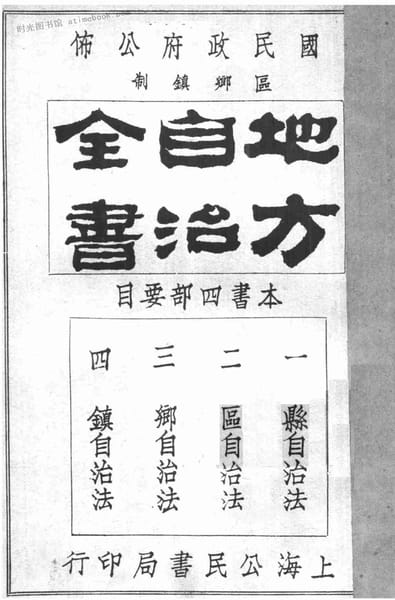 时光图书馆 atimebook.com
國民政府公佈
區鄉鎮制
地方
自治
全書
本書四部要目
一 縣自治法
二 區自治法
三 鄉自治法
四 鎮自治法
上海公民書局印行